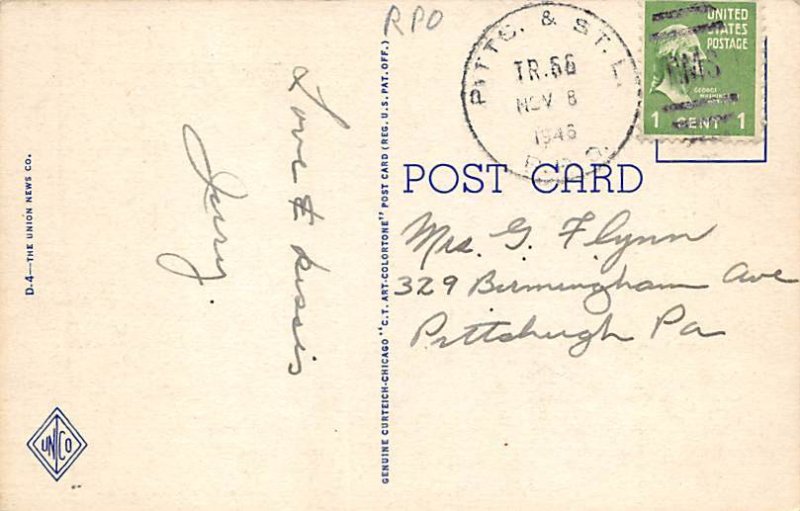 RPO
PITTS. & ST. L.
TR.66
NOV 8
1946
R.P.O.
UNITED
STATES
POSTAGE
RMS
GEORGE
WASHINGTON
1 CENT 1
POST CARD
Mrs. G. Flynn
329 Birmingham Ave
Pittsburgh Pa
Love & kissis
Jerry.
D.4—THE UNION NEWS CO.
UNCO
GENUINE CURTEICH-CHICAGO "C.T. ART-COLORTONE" POST CARD (REG. U.S. PAT. OFF.)